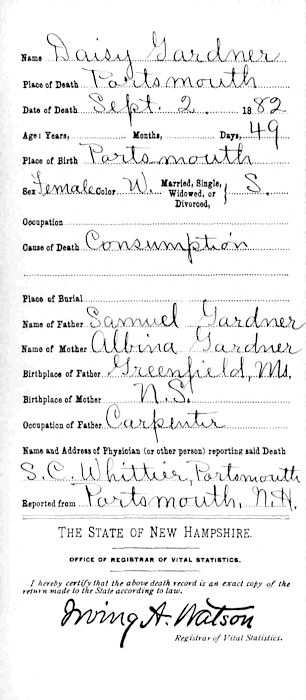 Name Daisy Gardner
Place of Death Portsmouth
Date of Death Sept. 2. 1882
Age: Years, Months, Days, 49
Place of Birth Portsmouth
Sex Female Color W. Married, Single, Widowed, or Divorced, } S.
Occupation
Cause of Death Consumption
Place of Burial
Name of Father Samuel Gardner
Name of Mother Albina Gardner
Birthplace of Father Greenfield, Ms.
Birthplace of Mother N.S.
Occupation of Father Carpenter
Name and Address of Physician (or other person) reporting said Death
S.C. Whittier, Portsmouth
Reported from Portsmouth, N.H.
THE STATE OF NEW HAMPSHIRE.
OFFICE OF REGISTRAR OF VITAL STATISTICS.
I hereby certify that the above death record is an exact copy of the
return made to the State according to law.
Irving A. Watson
Registrar of Vital Statistics.